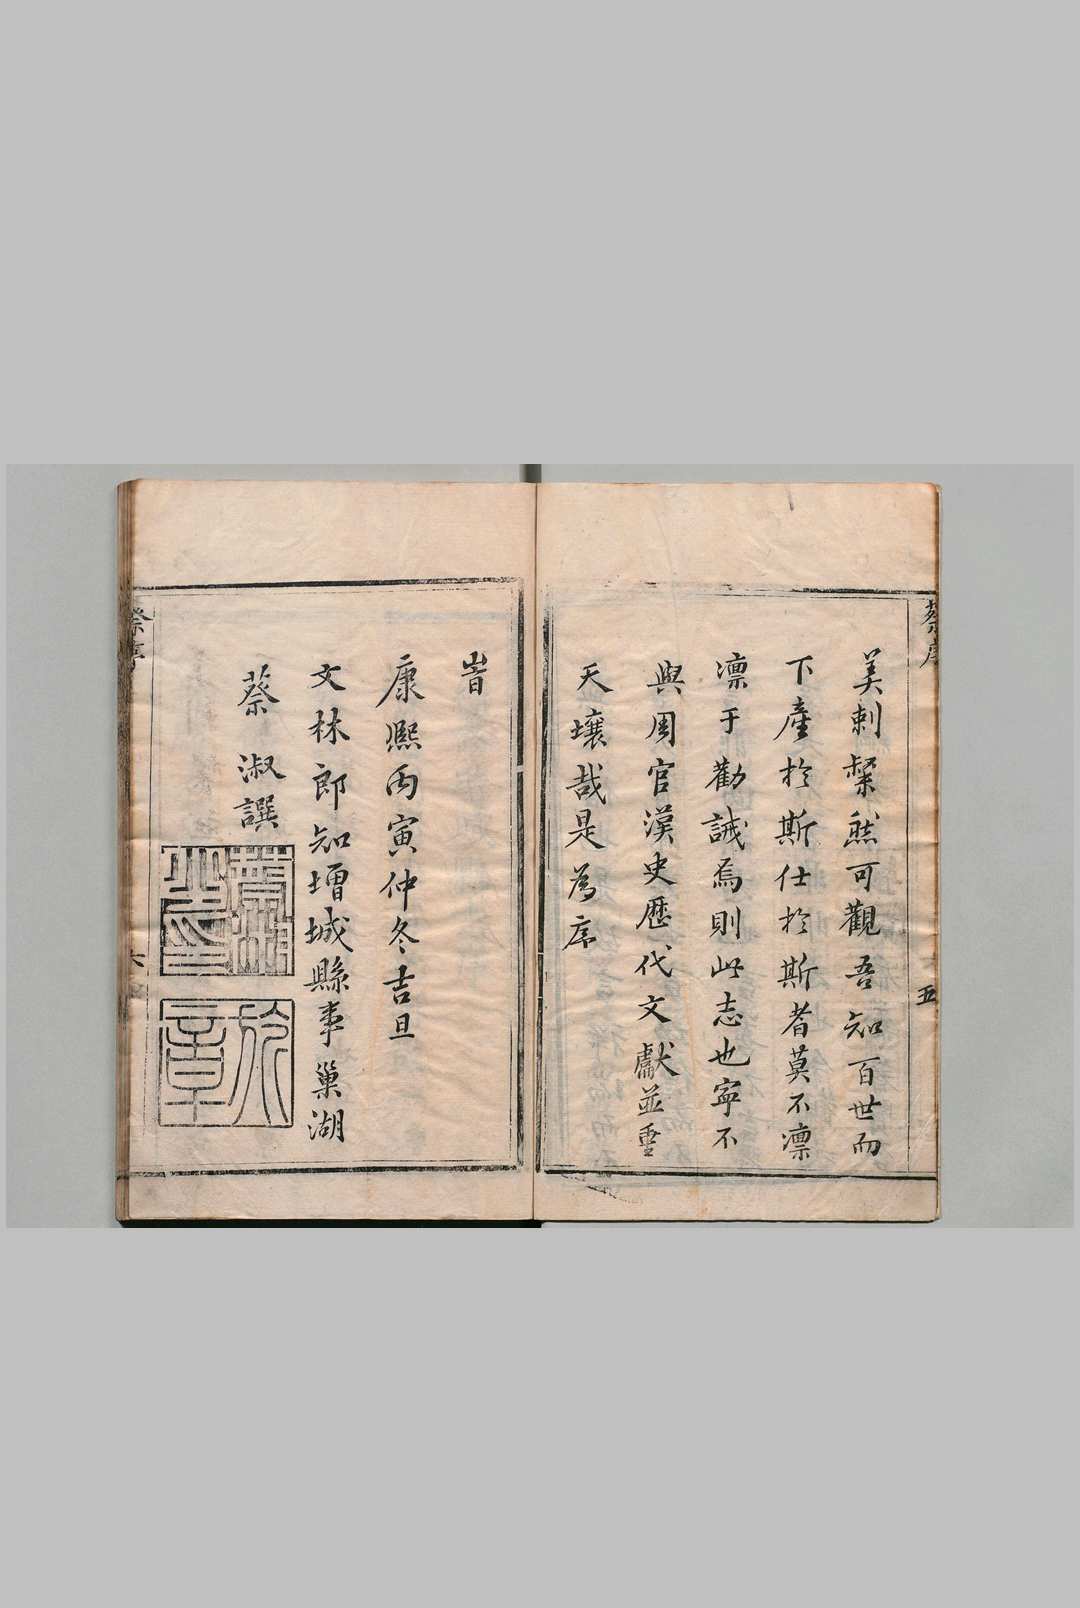 蔡序
五
美刺粲然可觀吾知百世而
下產於斯仕於斯者莫不凛
凛于勸誡焉則此志也寜不
與周官漢史歷代文獻並重
天壤哉是為序
旹
康熙丙寅仲冬吉旦
文林郎知增城縣事巢湖
蔡淑譔
蔡淑之印
章
蔡序
六